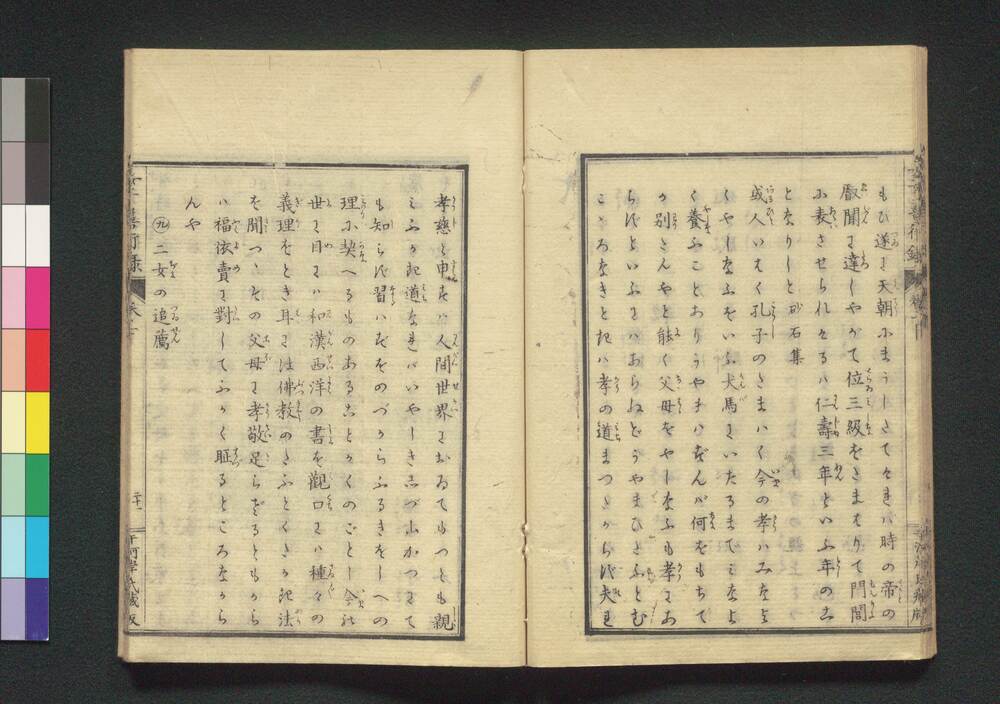 もひ遂に天朝にまうしさてそれは時の帝の
叡聞に達しやがて位三級をたまはりて門閭
に表させられたるは仁壽三年といふ年のこ
となりしと 砂石集
或人いはく孔子のたまはく今の孝はみなよ
くやしなふをいふ犬馬にいたるまでみなよ
く養ふことありうやまはずんば何をもちて
か別たんやと能く父母をやしなふも孝にあ
らずといふにはあらねどうやまひたふとむ
こゝろなきときは孝の道まつたからず夫レ
孝慈と申すは人間世界においてもつとも親
みふかき道なればいやしきしづ山がつまて
も知らず習はずおのづからふるきをしへの
理に契へるものあることかくのごとし今の
世に目には和漢西洋の書を觀口には種々の
義理をとき耳には佛教のたふとくさかき法
を聞つゝその父母に孝敬足らざるともがら
は福依賣に對してふかく耻るところなから
んや
㊈二女の追薦